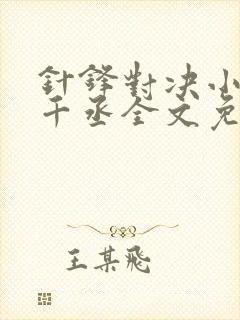 針鋒對决小
千丞全文免
王某飛